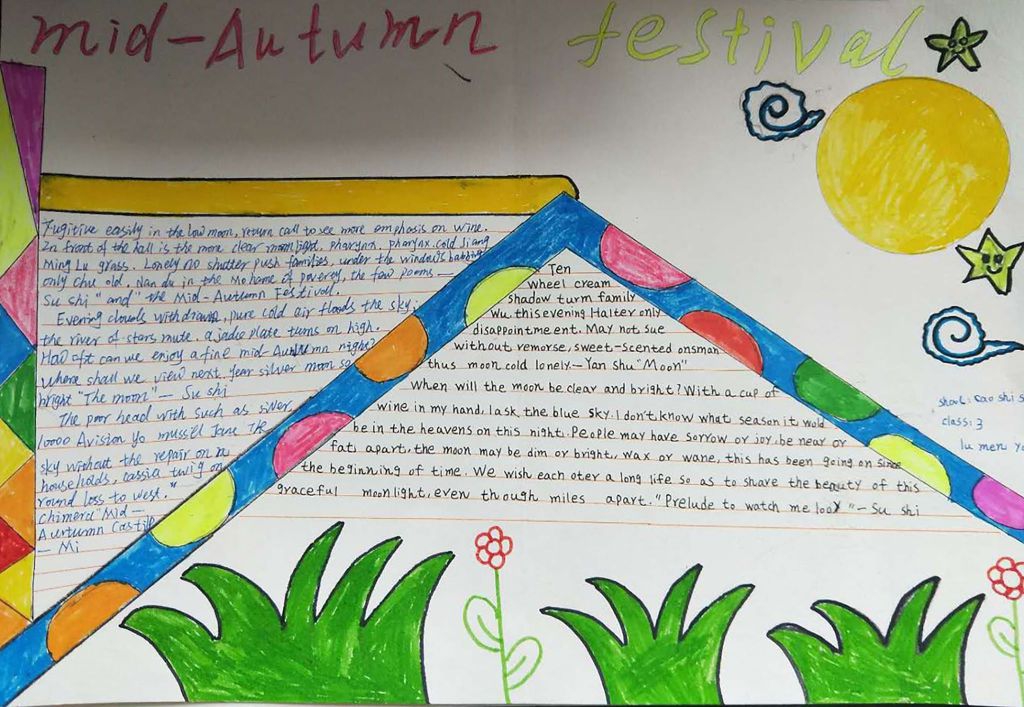 mid-Autumn festival
Fugitive easily in the low moon, return call to see more emphasis on wine.
In front of the hall is the more clear moonlight, pharynx, pharynx cold Jiang
Ming Lu grass. Lonely no shutter push families, under the window's babbing
only Chu old. Nan du in the Mo home of poverty, the few poems —
Su shi " and" the Mid-Autumn Festival.
Evening clouds withdrawn, pure cold air floods the sky;
the river of stars mute, a jade plate turns on high.
How oft can we enjoy a fine mid-Autumn night?
Where shall we view next year silver moon so
bright "The moon" — Su shi
The poor head with such as silver,
10000 Avision Yo The
sky without the repair on a
households, cassia twig on
round loss to west."
Chimera "Mid-
Aurtumn Castip
— Mi
Ten
wheel cream
shadow turm family
wu, this evening Halter only
disappointme ent. May not sue
without remorse, sweet-scented onsman
thus moon cold lonely.— Yan shu "Moon"
When will the moon be clear and bright? With a cup of
wine in my hand, I ask, the blue sky. I don't know what season it wold
be in the heavens on this night. People may have sorrow or joy, be near or
fat, apart, the moon may be dim or bright, wax or wane, this has been going on since
the beginning of time. We wish each oter a long life so as to share the beauty of this
graceful moonlight, even though miles apart. "Prelude to watch me looy" — Su shi
cao shi
class: 3
lu men